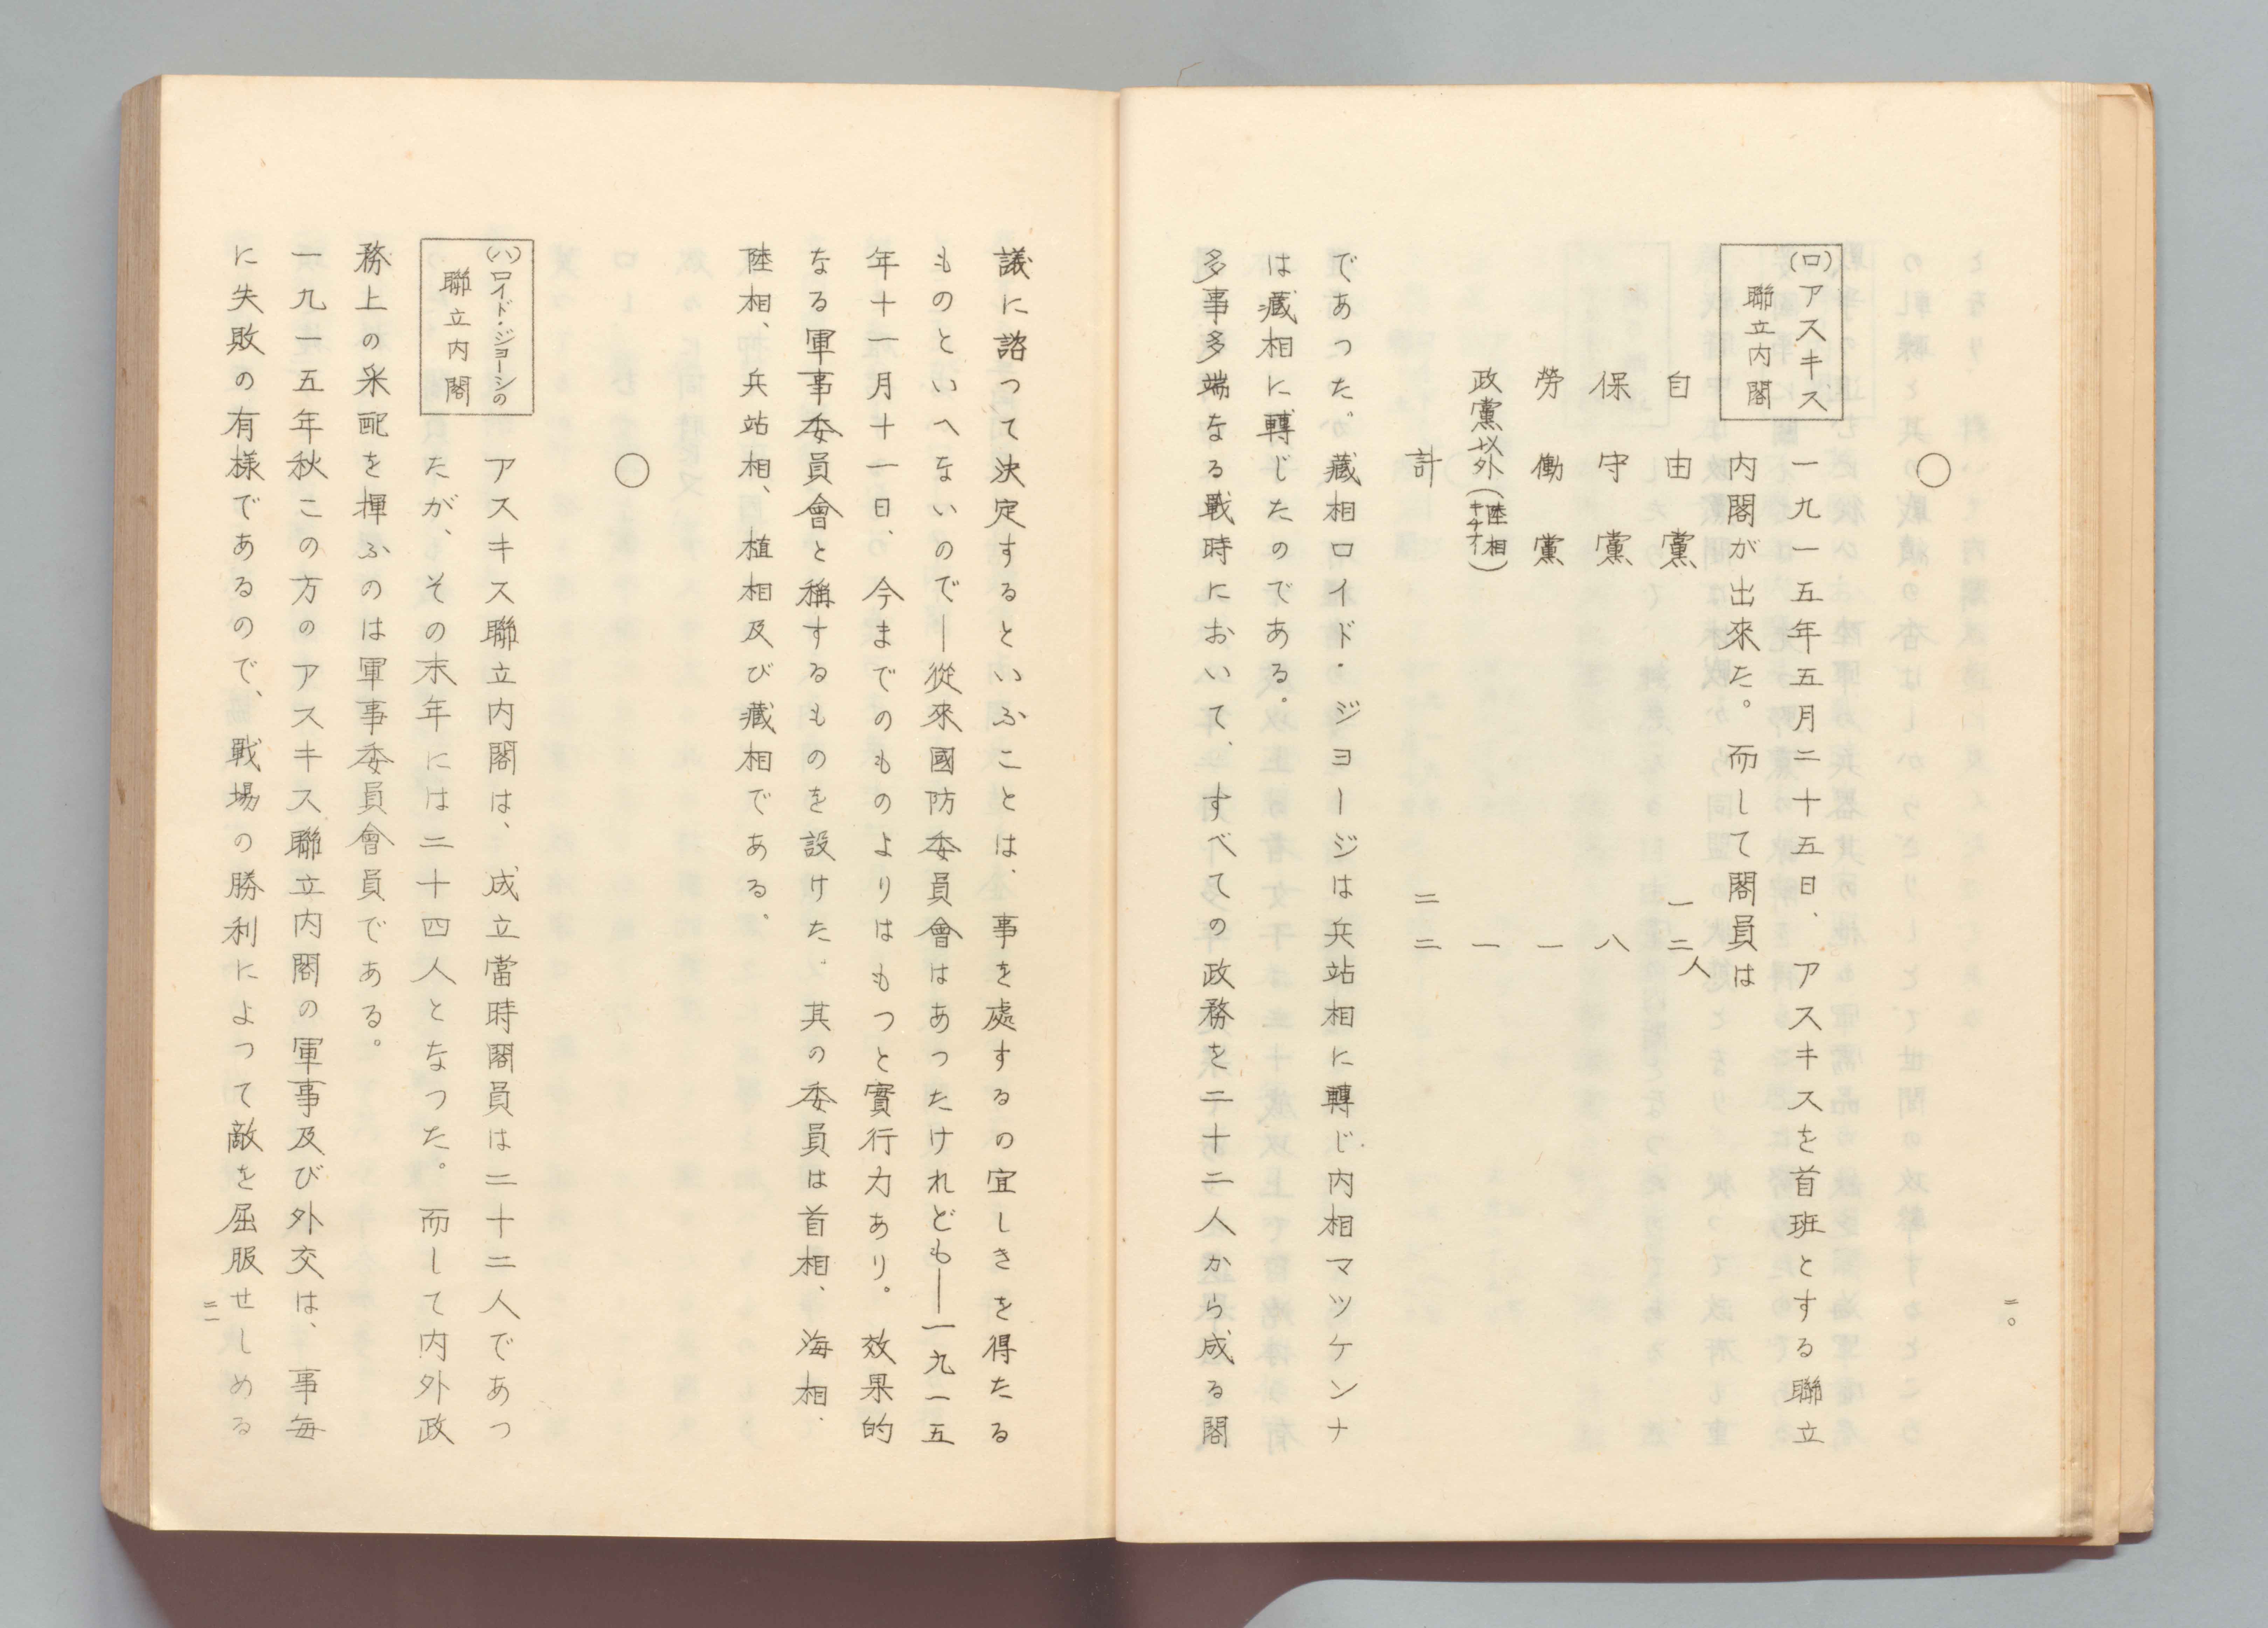 二〇
○
(ロ)アスキス
聯立内閣
一九一五年五月二十五日、アスキスを首班とする聯立
内閣が出來た。而して閣員は
自由黨 一二人
保守黨 八
勞働黨 一
政黨以外(陸相キチナー) 一
計 二二
であつた。が、藏相ロイド・ジョージは兵站相に轉じ内相マツケンナ
は藏相に轉じたのである。
多事多端なる戰時において、すべての政務を二十二人から成る閣
議に諮つて決定するといふことは、事を處するの宜しきを得たる
ものといへないので―從來國防委員會はあつたけれども―一九一五
年十一月十一日、今までのものよりはもつと實行力あり。效果的
なる軍事委員會と稱するものを設けた。其の委員は首相、海相、
陸相、兵站相、植相及び藏相である。
○
(ハ)ロイド・ジョージの
聯立内閣
アスキス聯立内閣は、成立當時閣員は二十二人であつ
たが、その末年には二十四人となつた。而して内外政
務上の采配を揮ふのは軍事委員會員である。
一九一五年秋この方のアスキス聯立内閣の軍事及び外交は、事毎
に失敗の有樣であるので、戰場の勝利によつて敵を屈服せしめる
二一